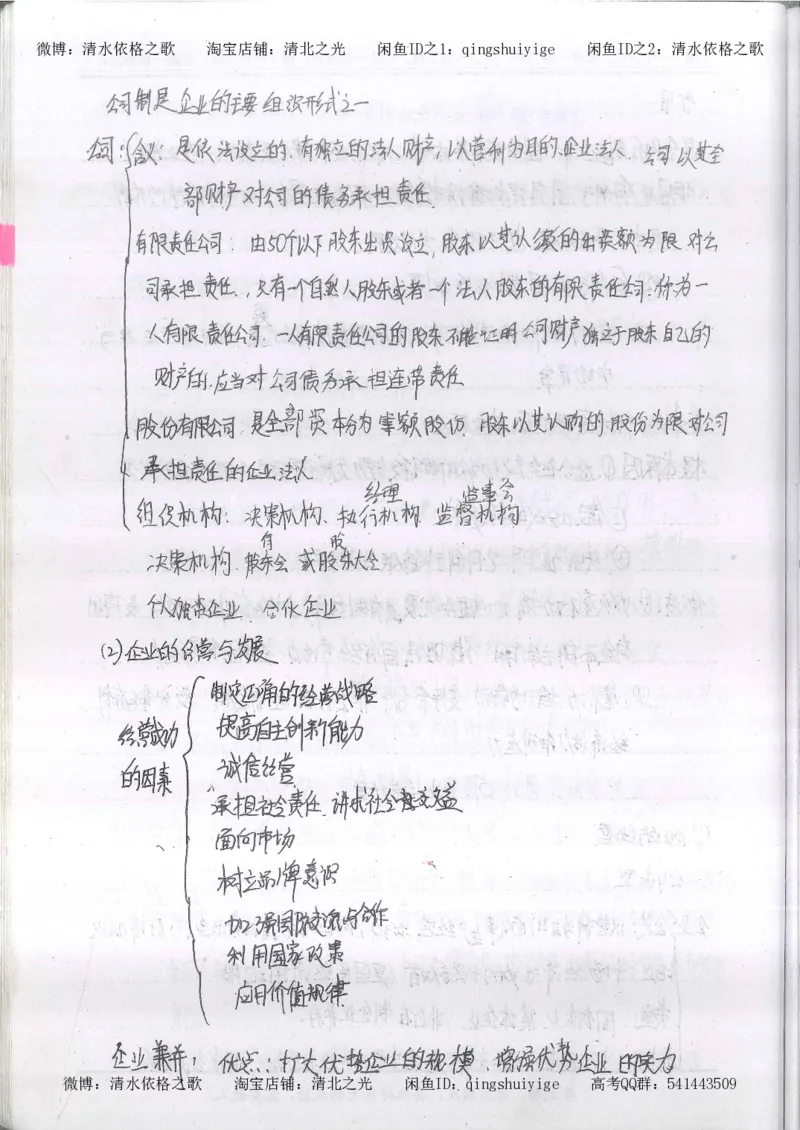 微博：清水依格之歌 淘宝店铺：清北之光 闲鱼ID之1：qingshuiyige 闲鱼ID之2：清水依格之歌
公司制是企业的主要组织形式之一
公司：含义：是依法设立的、有独立的法人财产，以营利为目的企业法人．公司以其全
部财产对公司的债务承担责任．
有限责任公司：由50个以下股东出资设立，股东以其认缴的出资额为限对公
司承担责任．，只有一个自然人股东或者一个法人股东的有限责任公司：称为一
人有限责任公司．一人有限责任公司的股东不能证明公司财产独立于股东自己的
财产的，应当对公司债务承担连带责任
股份有限公司：是全部资本分为等额股份，股东以其认购的股份为限对公司
承担责任的企业法人
经理 监事会
组织机构：决策机构、执行机构 监督机构
有 股
决策机构．股东会 或股东大会
个人独资企业、合伙企业
(2)企业的经营与发展
制定正确的经营战略
经营成功
提高自主创新能力
诚信经营
的因素
承担社会责任．讲求社会效益
面向市场
树立品牌意识
加强国际交流与合作
利用国家政策
应用价值规律
企业兼并：优点：扩大优势企业的规模、增强优势企业的实力
微博：清水依格之歌 淘宝店铺：清北之光 闲鱼ID：qingshuiyige 高考QQ群：541443509